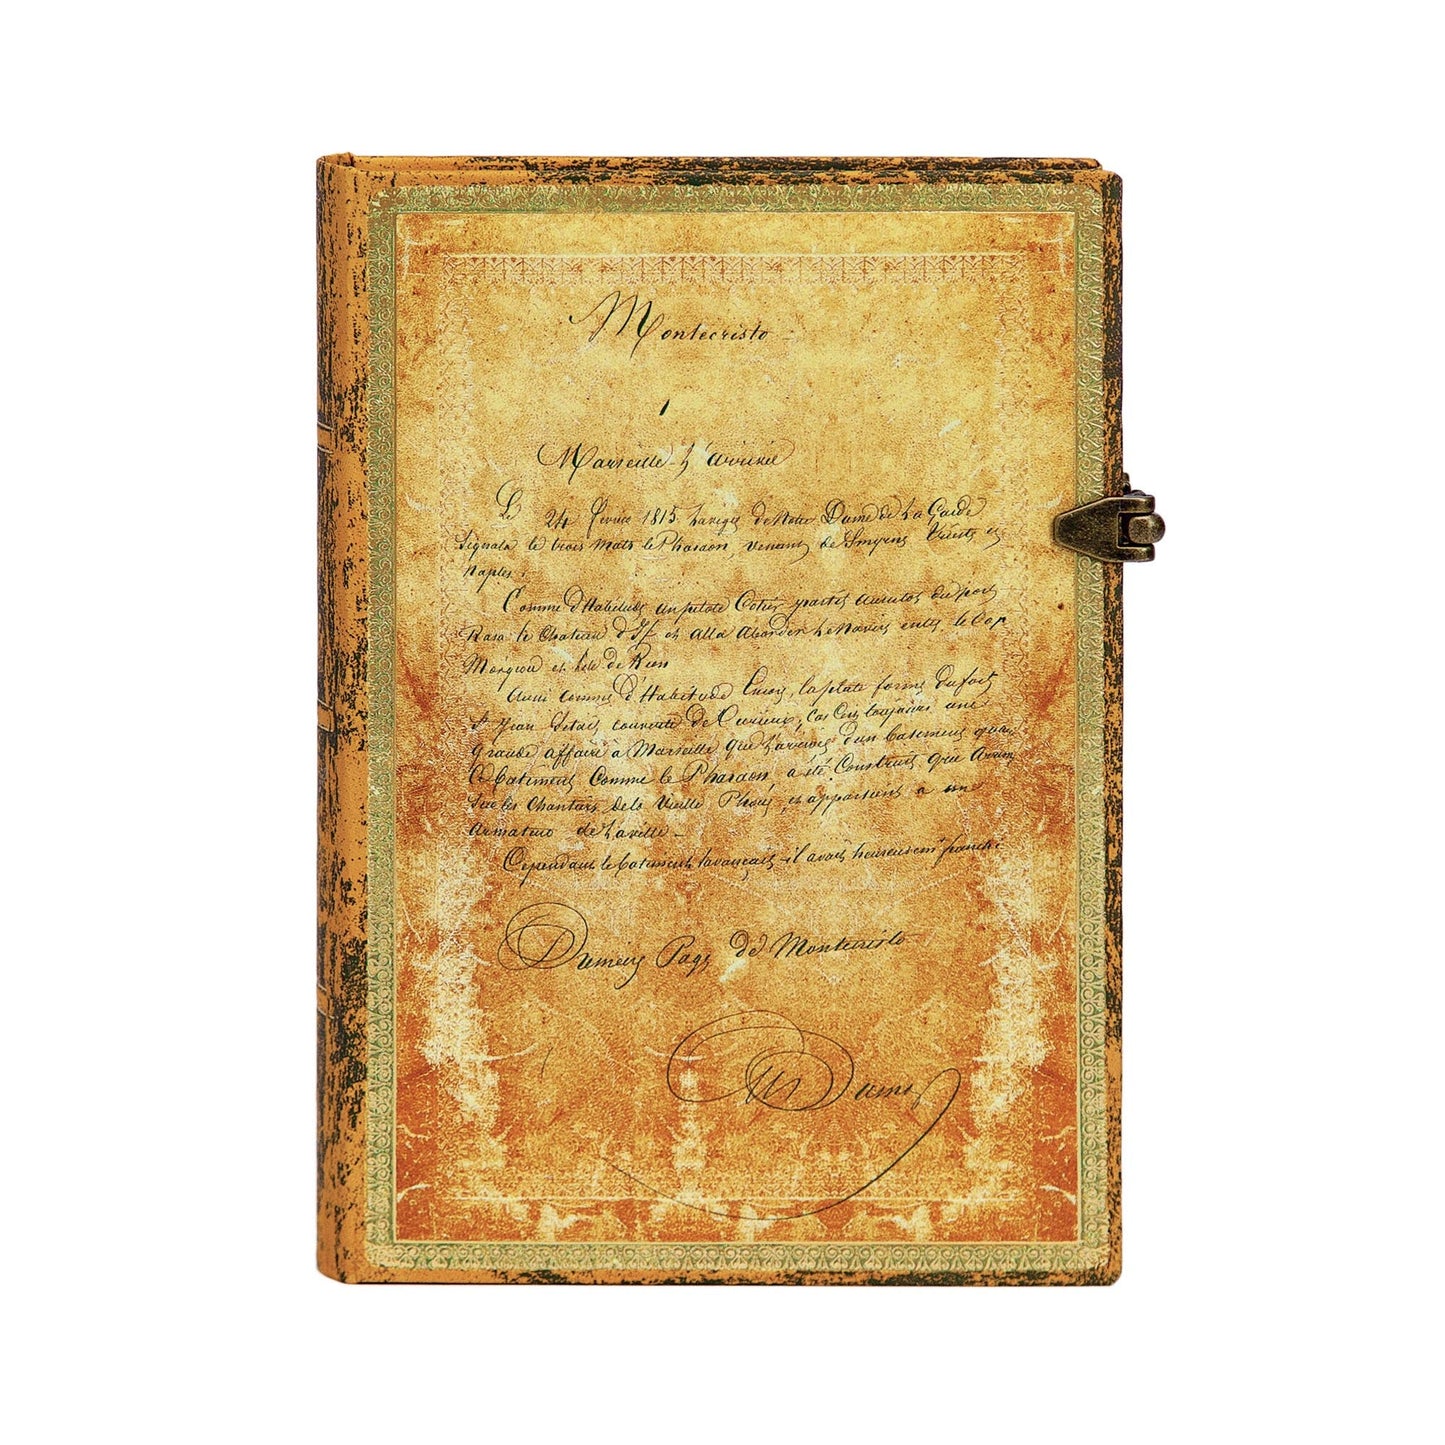 Montecristo
1
Marseille - L'arrivée
Le 24 fevrier 1815 la vigie de Notre Dame de La Garde
Signala le trois mats le Pharaon, venant de Smyrne Trieste et
Naples.
Comme d'Habitude un pilote Cotier partit aussitot du port
Rasa le Chateau d'If et alla aborder le Navire entre le Cap
Morgiou et l'ile de Rion
Aussi comme d'Habitude encore, la plate forme du fort
St Jean s'etait couverte de Curieux, car c'est toujours une
grande affaire a Marseille que l'arrivée d'un batiment quand
Ce batiment Comme le Pharaon, a été Construit gree Arrimé
Sur les Chantiers de la Vieille Phocée, et appartient a un
Armateur de la ville -
Cependant le batiment s'avançait - il avait heureusemt franchi
Premiere Page de Montecristo
Alex Dumas